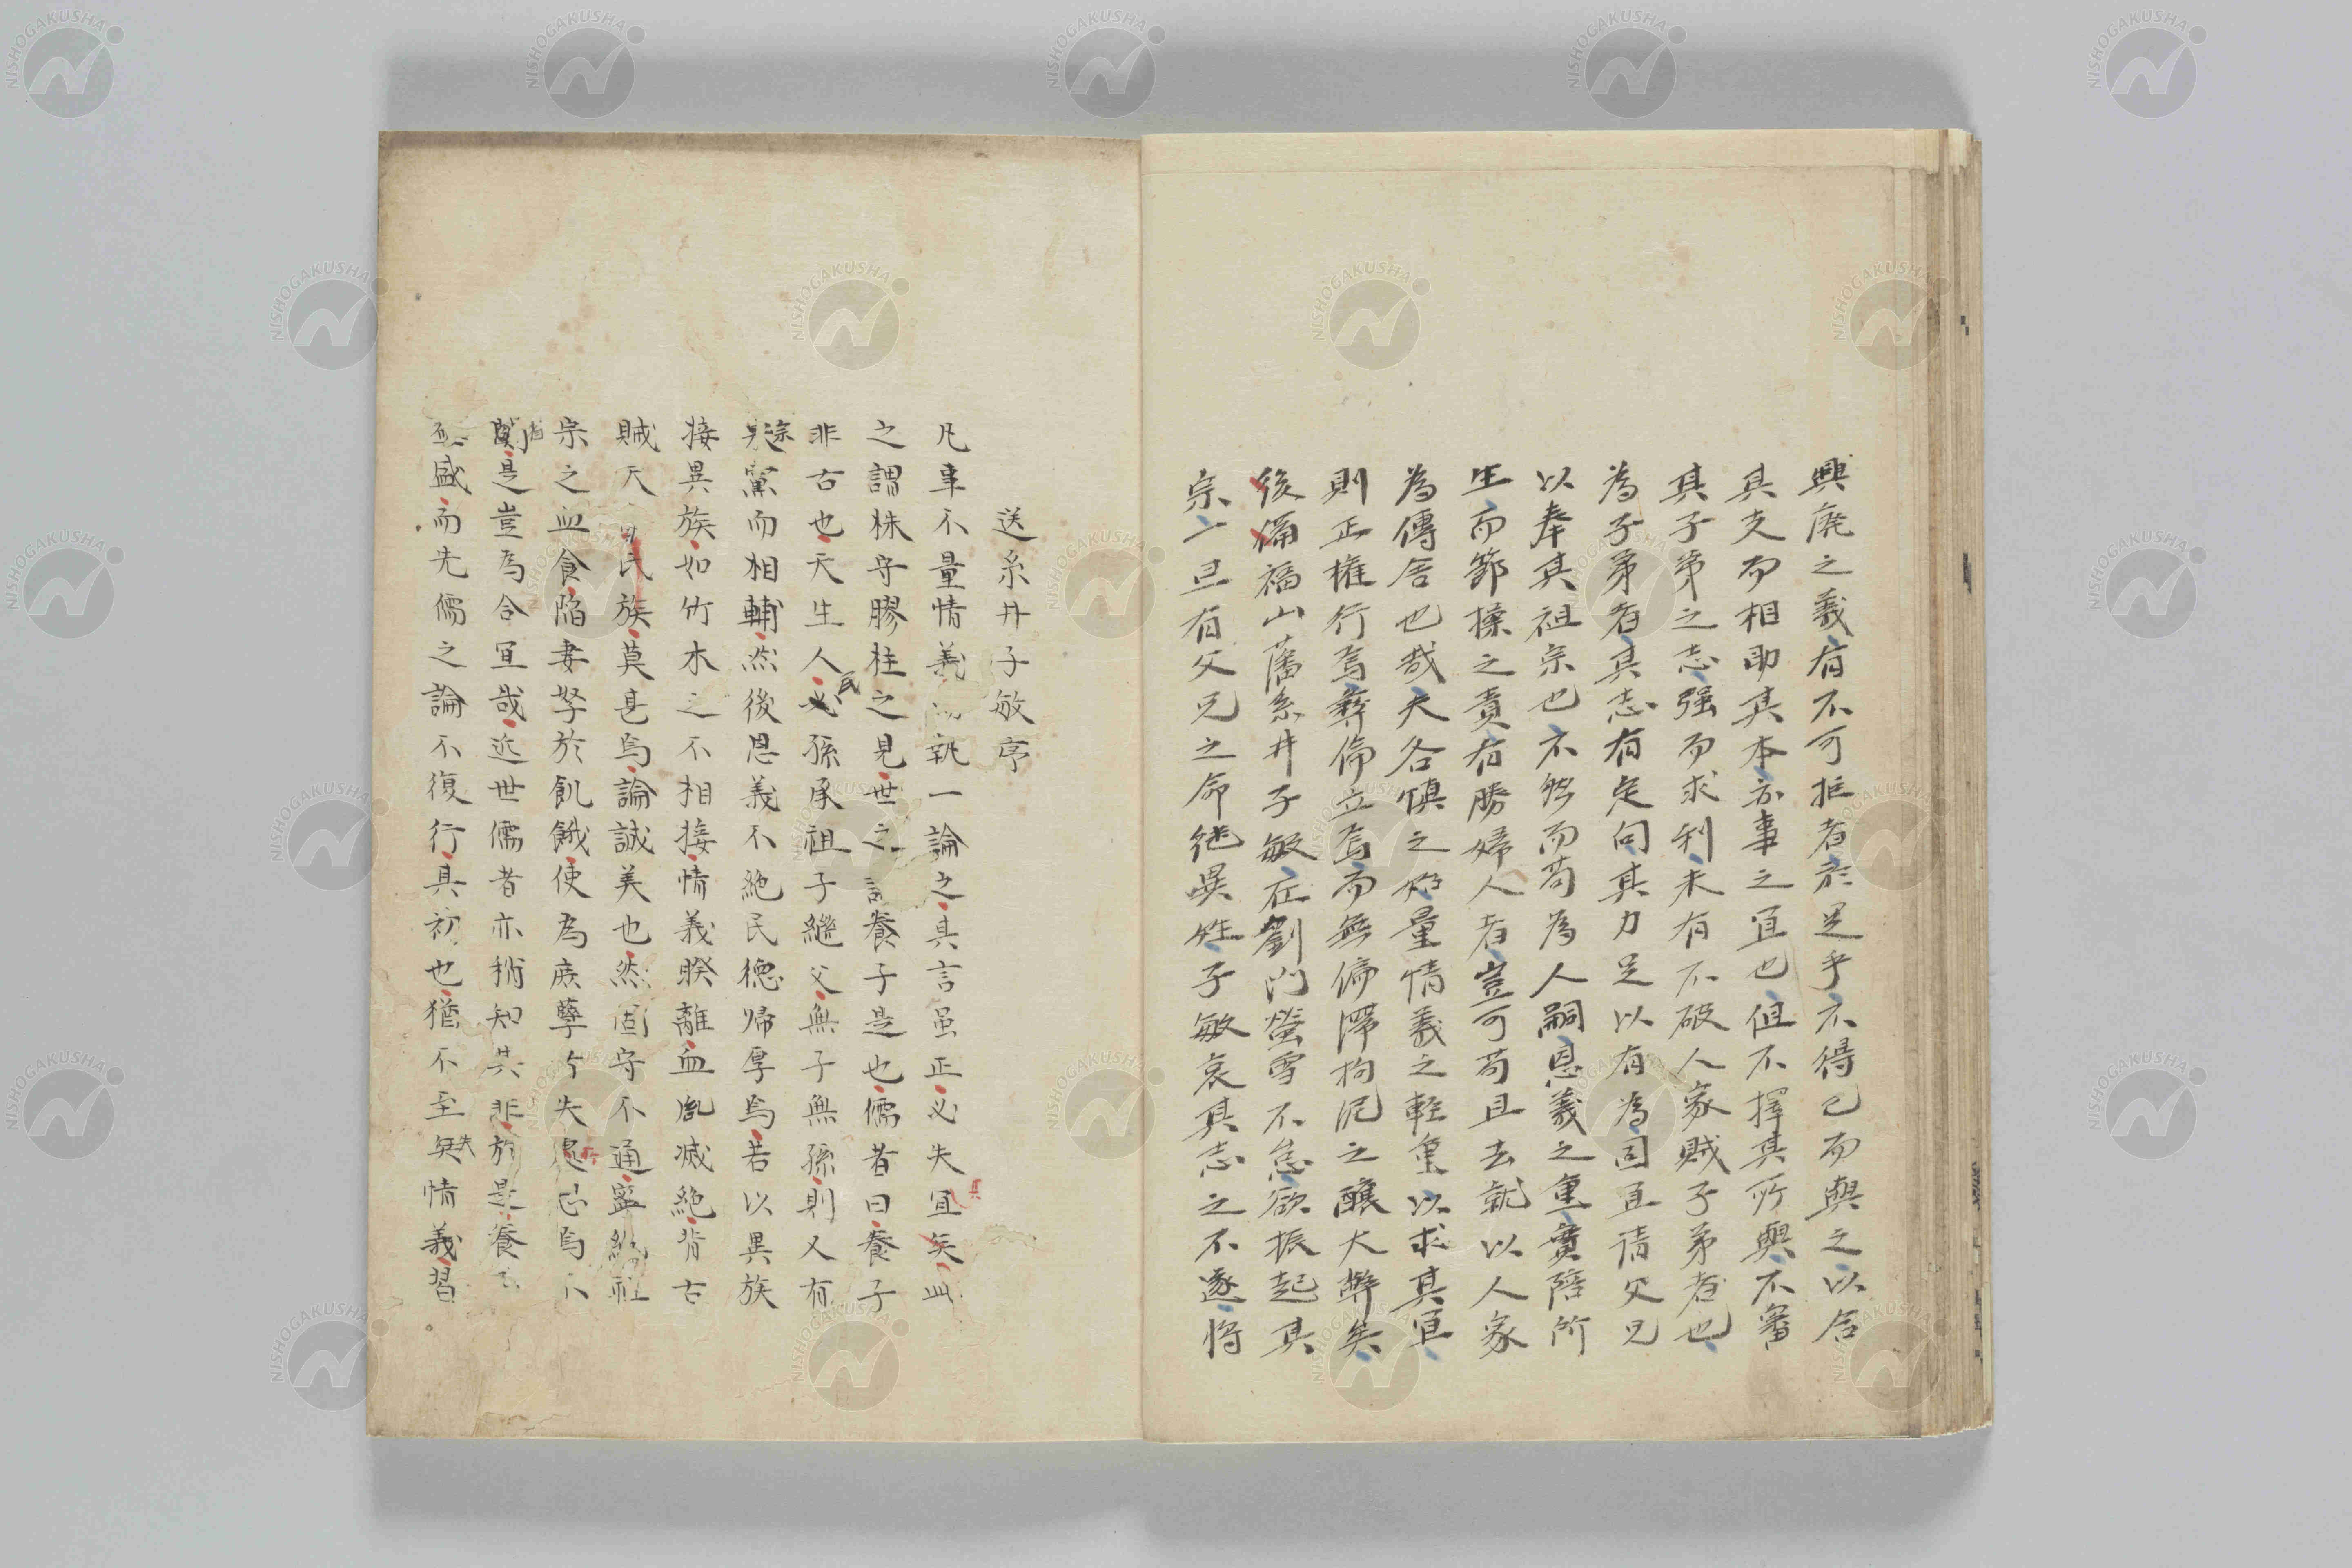 興廃之義有不可拒者於是乎不得已而與之以合
其支而相助其本亦事之宜也但不擇其所與不審
其子弟之志强而求利未有不破人家賊子弟者也
為子弟者其志有定向其力足以有為固宜請父兄
以奉其祖宗也不然而苟為人嗣恩義之重實陪所
生而節操之責有勝婦人者豈可苟且去就以人家
為傳舍也哉夫各慎之始量情義之軽重以求其宜
則正権行焉彝倫立焉而無偏滞拘泥之釀大弊矣
後備福山藩糸井子敏在劉門螢雪不怠欲振起其
宗一旦有父兄之命継異姓子敏哀其志之不遂将
送糸井子敏序
凡事不量情義執一論之其言虽正必失其宜矣此
之謂株守膠柱之見世之議養子是也儒者曰養子
非古也天生人民必孫承祖子繼父無子無孫則又有
宗黨而相輔然後恩義不絶民徳帰厚焉若以異族
接異族如竹木之不相接情義睽離血胤滅絶背古
賊天民族莫甚焉論誠美也然固守不通寧絶祖
宗之血食陷妻孥於飢餓使為庶孽失忠焉不
是豈為合宜哉近世儒者亦稍知其非於是養子
盛而先儒之論不復行其初也猶不至失情義習
NISHOGAKUSHA